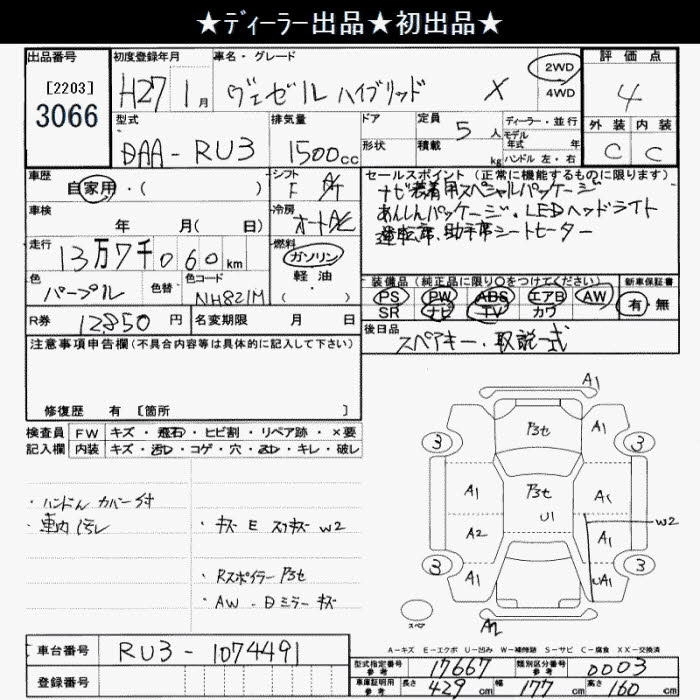 ★ディーラー出品★初出品★
出品番号 [2203] 3066
初度登録年月 H27 1月
車名・グレード ヴェゼル ハイブリッド X
2WD 4WD
評価点 4
外装 内装
C C
型式 DAA-RU3
排気量 1500cc
ドア
形状
定員 5 人
積載 kg
ディーラー・並行
モデル年式 年
ハンドル 左・右
車歴 自家用・( )
シフト F AT
セールスポイント (正常に機能するものに限ります)
ナビ装着用スペシャルパッケージ
あんしんパッケージ・LEDヘッドライト
運転席、助手席シートヒーター
車検 年 月( 日)
冷房 オートAC
走行 13万7千060km
燃料 ガソリン 軽油 ( )
色 パープル
色替
色コード NH821M
装備品 (純正品に限り○をつけてください)
PS PW ABS エアB AW
SR ナビ TV カワ
新車保証書 有 無
R券 12,850円
名変期限 月 日
後日品 スペアキー・取説一式
注意事項申告欄 (不具合内容等は具体的に記入して下さい)
修復歴 有 [箇所 ]
検査員 FW キズ・飛石・ヒビ割・リペア跡・×要
記入欄 内装 キズ・汚れ・コゲ・穴・スレ・キレ・破レ
・ハンドルカバー付
・車内汚レ
・キズ E スリキズ W2
・Rスポイラー アセ
・AW・Dミラー キズ
A1
アセ A1
3 3
A1 アセ A1
U1
W2
A2 A1
3 3
A1 UA1
スペア
A2
A-キズ E-エクボ U-凹み W-補修跡 S-サビ C-腐食 XX-交換済
車台番号 RU3-1074491
登録番号
型式指定番号 参考 17667
類別区分番号 参考 0003
車庫証明用 参考 長さ 429cm 幅 177cm 高さ 160cm